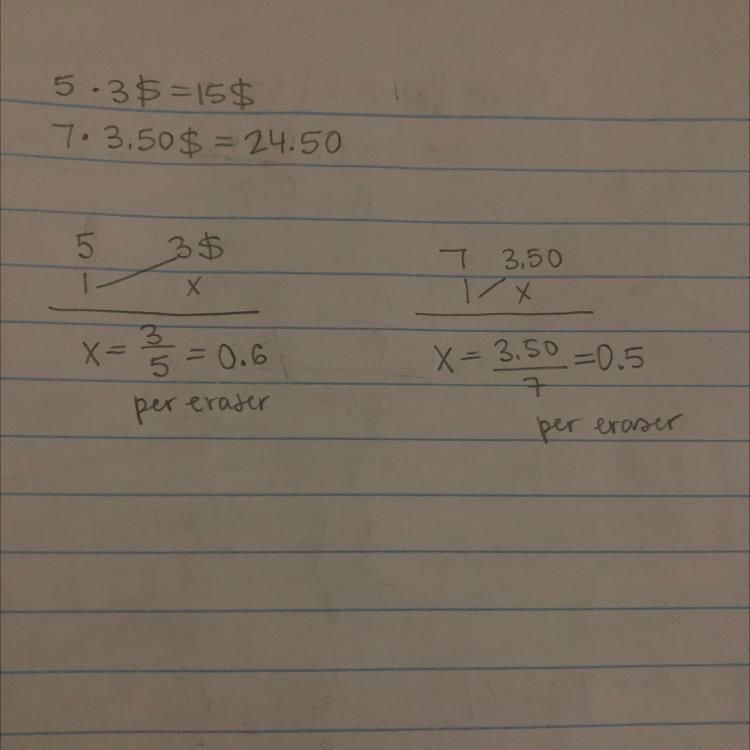 5 · 3$ = 15$
7 · 3.50$ = 24.50
5 3$
1 x
x = 3/5 = 0.6
per eraser
7 3.50
1 x
x = 3.50/7 = 0.5
per eraser